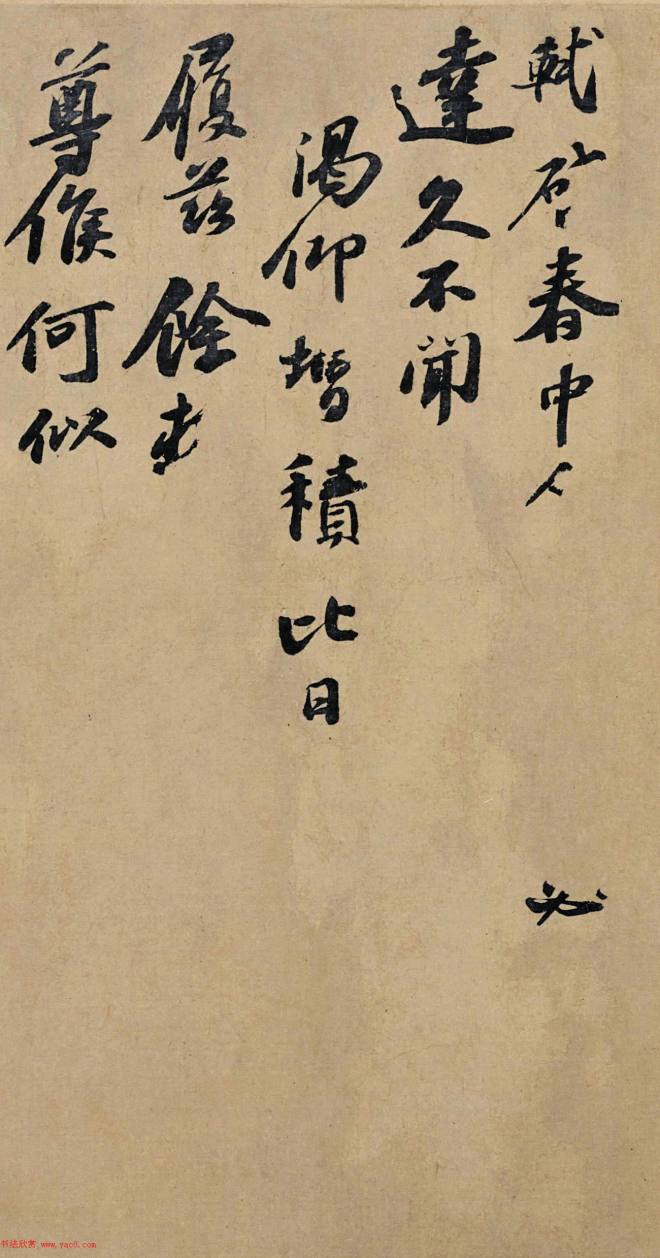 軾啓春中人
必
達久不聞
渴仰增積比日
履茲餘
尊候何似
书法欣赏 www.yac8.com